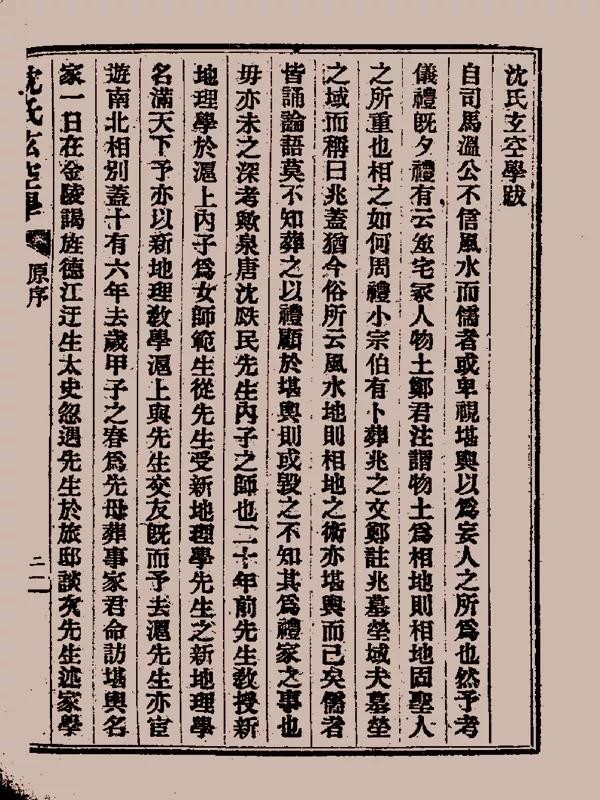 沈氏玄空學跋
自司馬溫公不信風水而儒者或卑視堪輿以爲妄人之所爲也然予考
儀禮旣夕禮有云筮宅冢人物土鄭君注謂物土爲相地則相地固聖人
之所重也相之如何周禮小宗伯有卜葬兆之文鄭註兆墓塋域夫墓塋
之域而稱曰兆蓋猶今俗所云風水地則相地之術亦堪輿而已矣儒者
皆誦論語莫不知葬之以禮顧於堪輿則或毀之不知其爲禮家之事也
毋亦未之深考歟泉唐沈瓞民先生內子之師也二十年前先生敎授新
地理學於滬上內子爲女師範生從先生受新地理學先生之新地理學
名滿天下予亦以新地理敎學滬上與先生交友旣而予去滬先生亦宦
遊南北相別蓋十有六年去歲甲子之春爲先母葬事家君命訪堪輿名
家一日在金陵謁旌德江迂生太史忽遇先生於旅邸談次先生述家學
沈氏玄空學
原序
二一